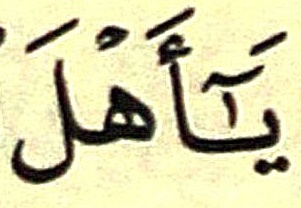 يَـٰٓأَهْلَ